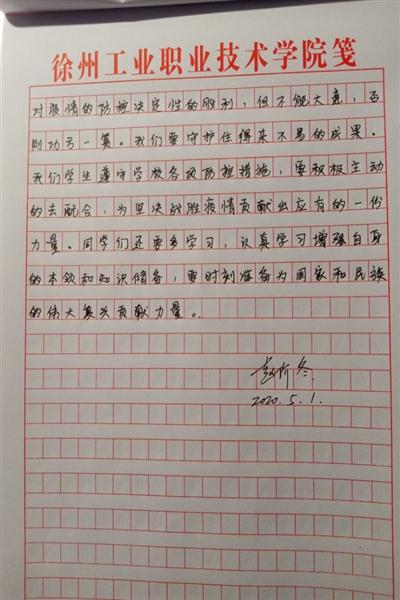 徐州工业职业技术学院笺
对疫情的防控决定性的胜利，但不能大意，否
则功亏一篑。我们要守护住得来不易的成果。
我们学生遵守学校各项防控措施，要积极主动
的去配合，为坚决战胜疫情贡献出应有的一份
力量。同学们还要多学习，认真学习增强自身
的本领和知识储备，要时刻准备为国家和民族
的伟大复兴贡献力量。
2020.5.1.